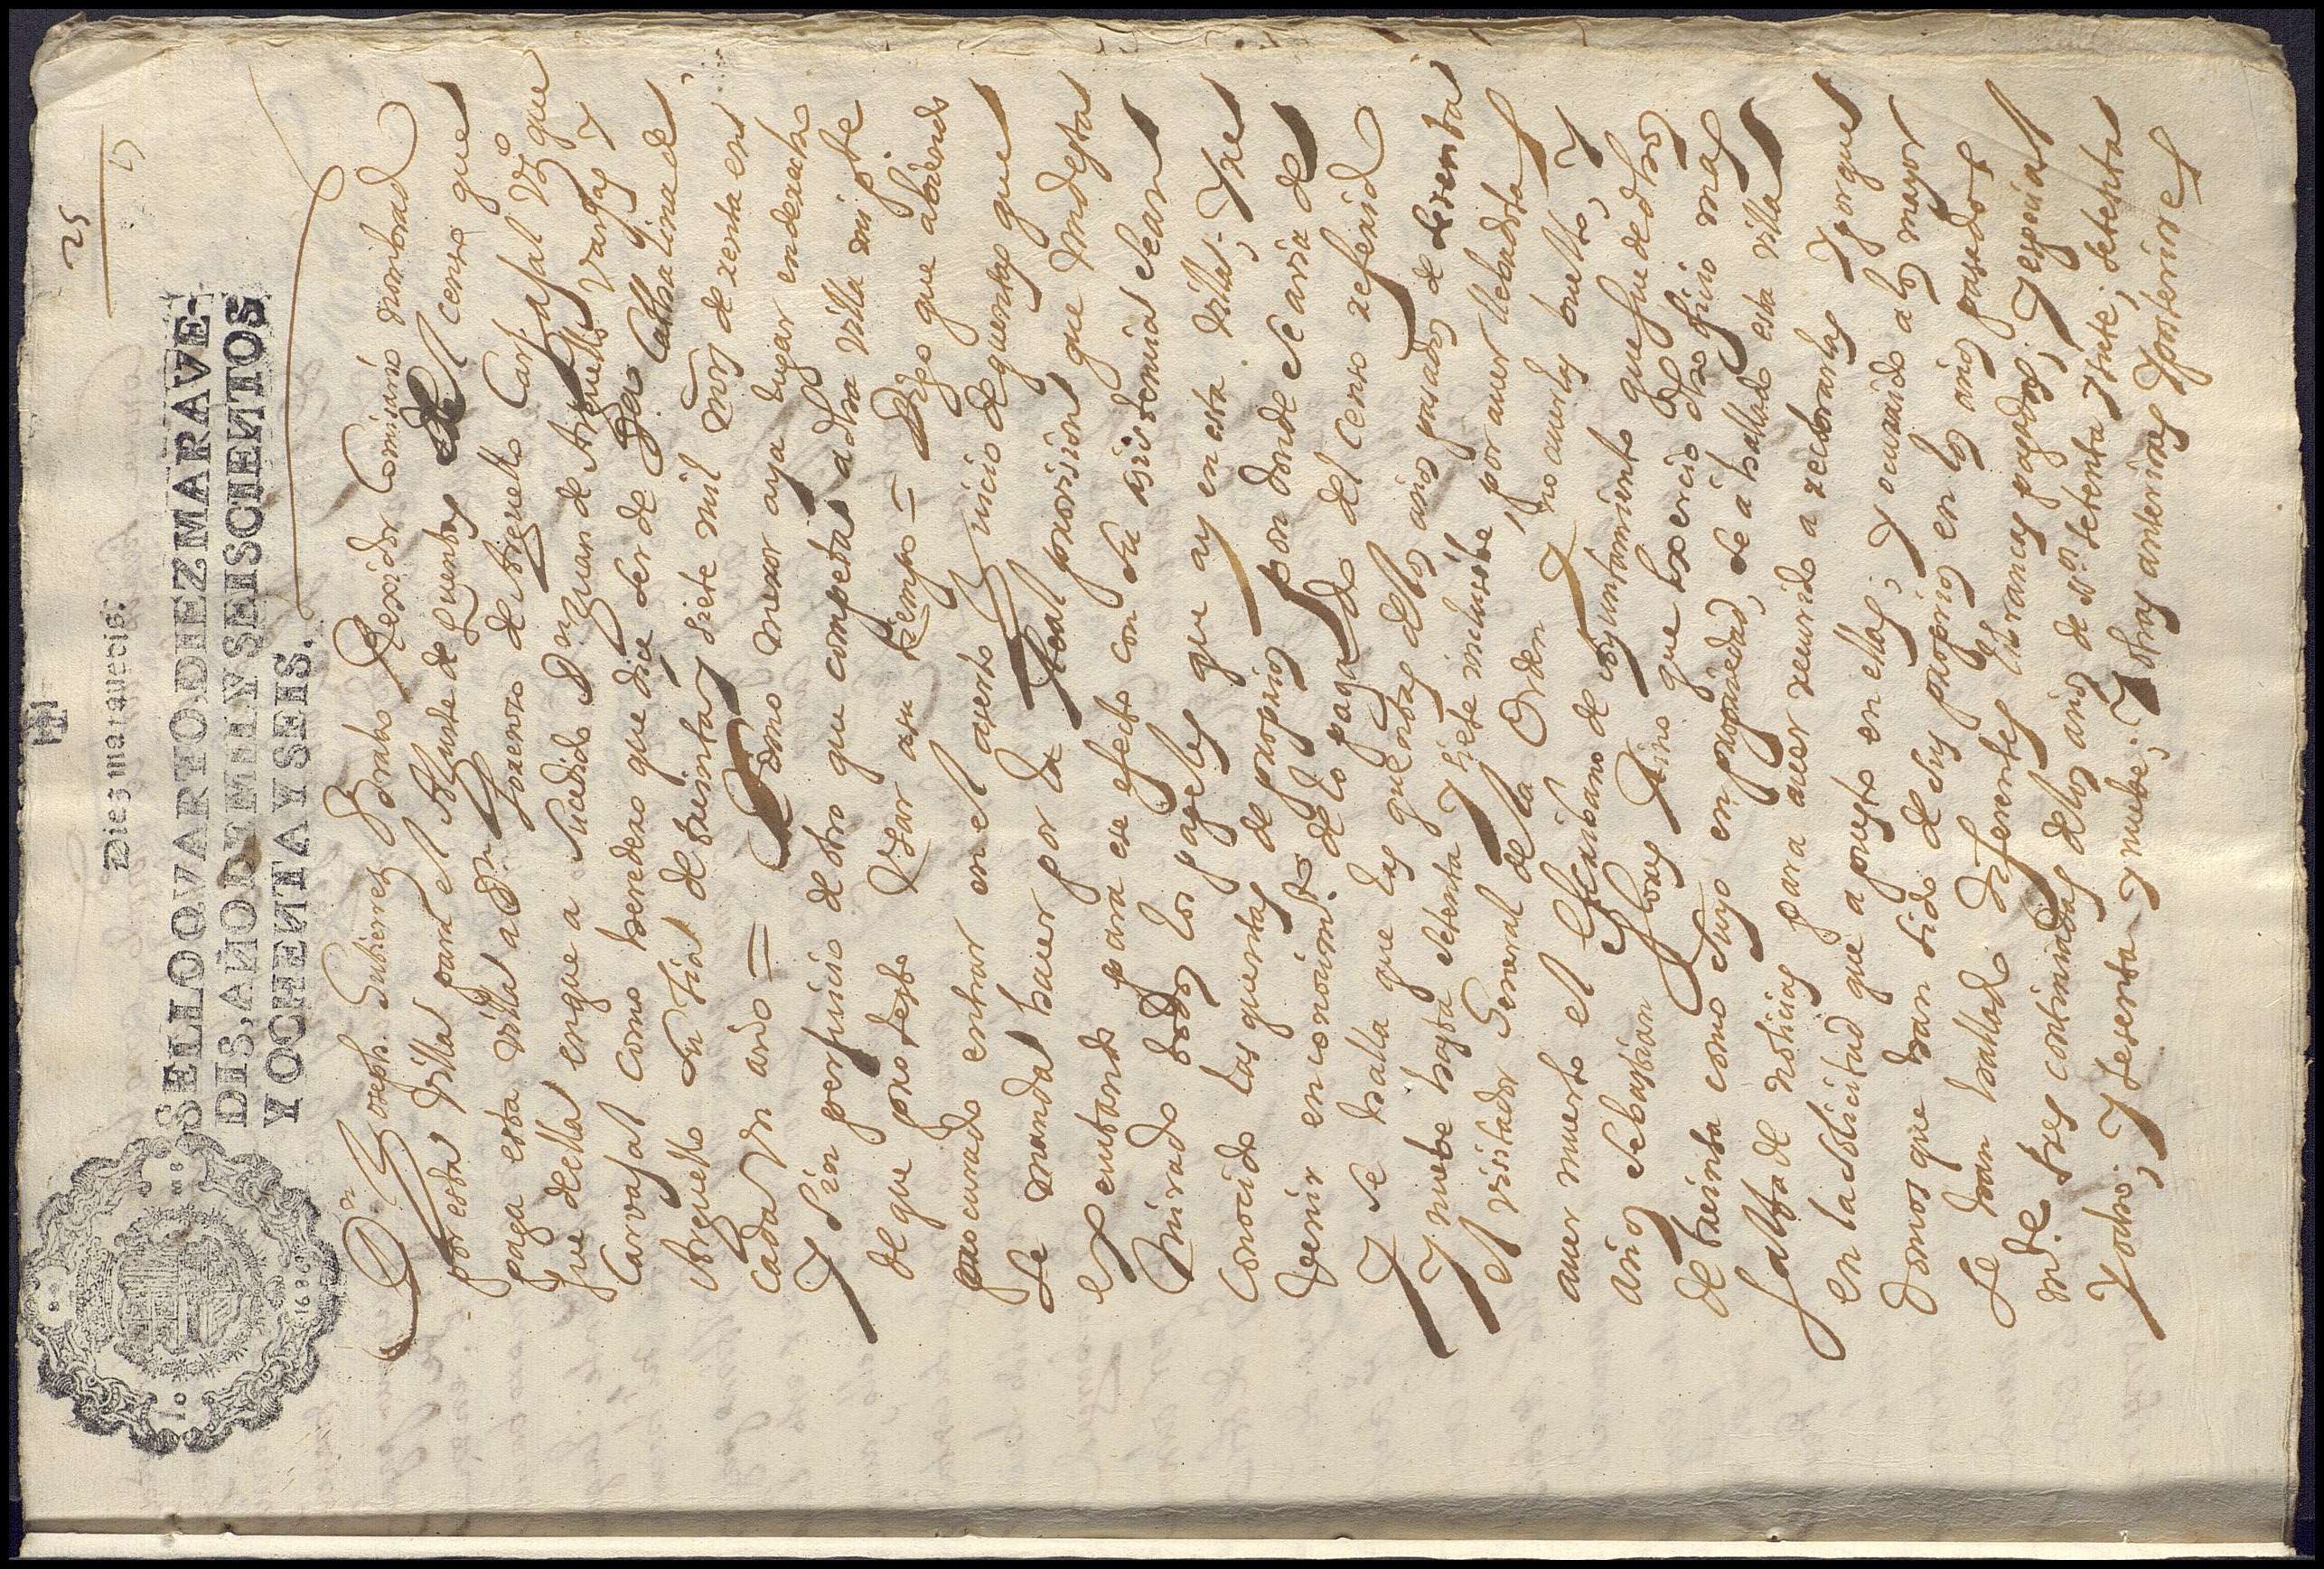 25
Diez maravedis.
SELLO QVARTO, DIEZ MARAVE-
DIS, AÑO DE MIL Y SEISCIENTOS
Y OCHENTA Y SEIS.
Dn Joseph Gutierrez Brabo Rexidor Comisario nombrado
por esta villa para el Ajuste de quentas del censo que
paga esta villa a Dn Lorenzo de Arguello Carvajal Vº que
fue della en que a sucedido Dn Juan de Arguello Vargas y
Carvajal como heredero que dice ser de Dª Cathalina de
Arguello su tia de treinta y siete mil mrs de renta en
cada un año = Como mexor aya lugar en derecho
y sin perjuicio de otro que competa a dha villa mi pte
de que protesto usar a su tiempo = Digo que abiendo
procurado entrar en el ajuste y juicio de quentas que
se manda hacer por la Real provision que Vmd esta
executando para ese efecto con su asistencia se an
mirado todos los papeles que ay en esta villa, y re
conocido las quentas de propios por donde se avia de
venir en conocimto de lo pagado del censo referido
y se halla que las quentas de los años pasados de sesenta
y nuebe hasta setenta y siete inclusibe por auer llebadola
el visitador General de la Orden y no auerlas buelto, y
auer muerto el escribano de Ayuntamiento que fue de dhos
años Sebastian Flores Pino que exercio dho oficio mas
de treinta como suyo en propriedad, se a hallado esta villa
falta de noticias para auer recurrido a recobrarlas y porque
en la solicitud que a puesto en ellas, y ocurrido a los mayor
domos que han sido de sus propios en los años pasados
se han hallado diferentes libranzas pagadas, y especial
mte tres continuadas de los años de sesenta y siete, setenta
y ocho, y sesenta y nuebe, y otras anteriores y posteriores